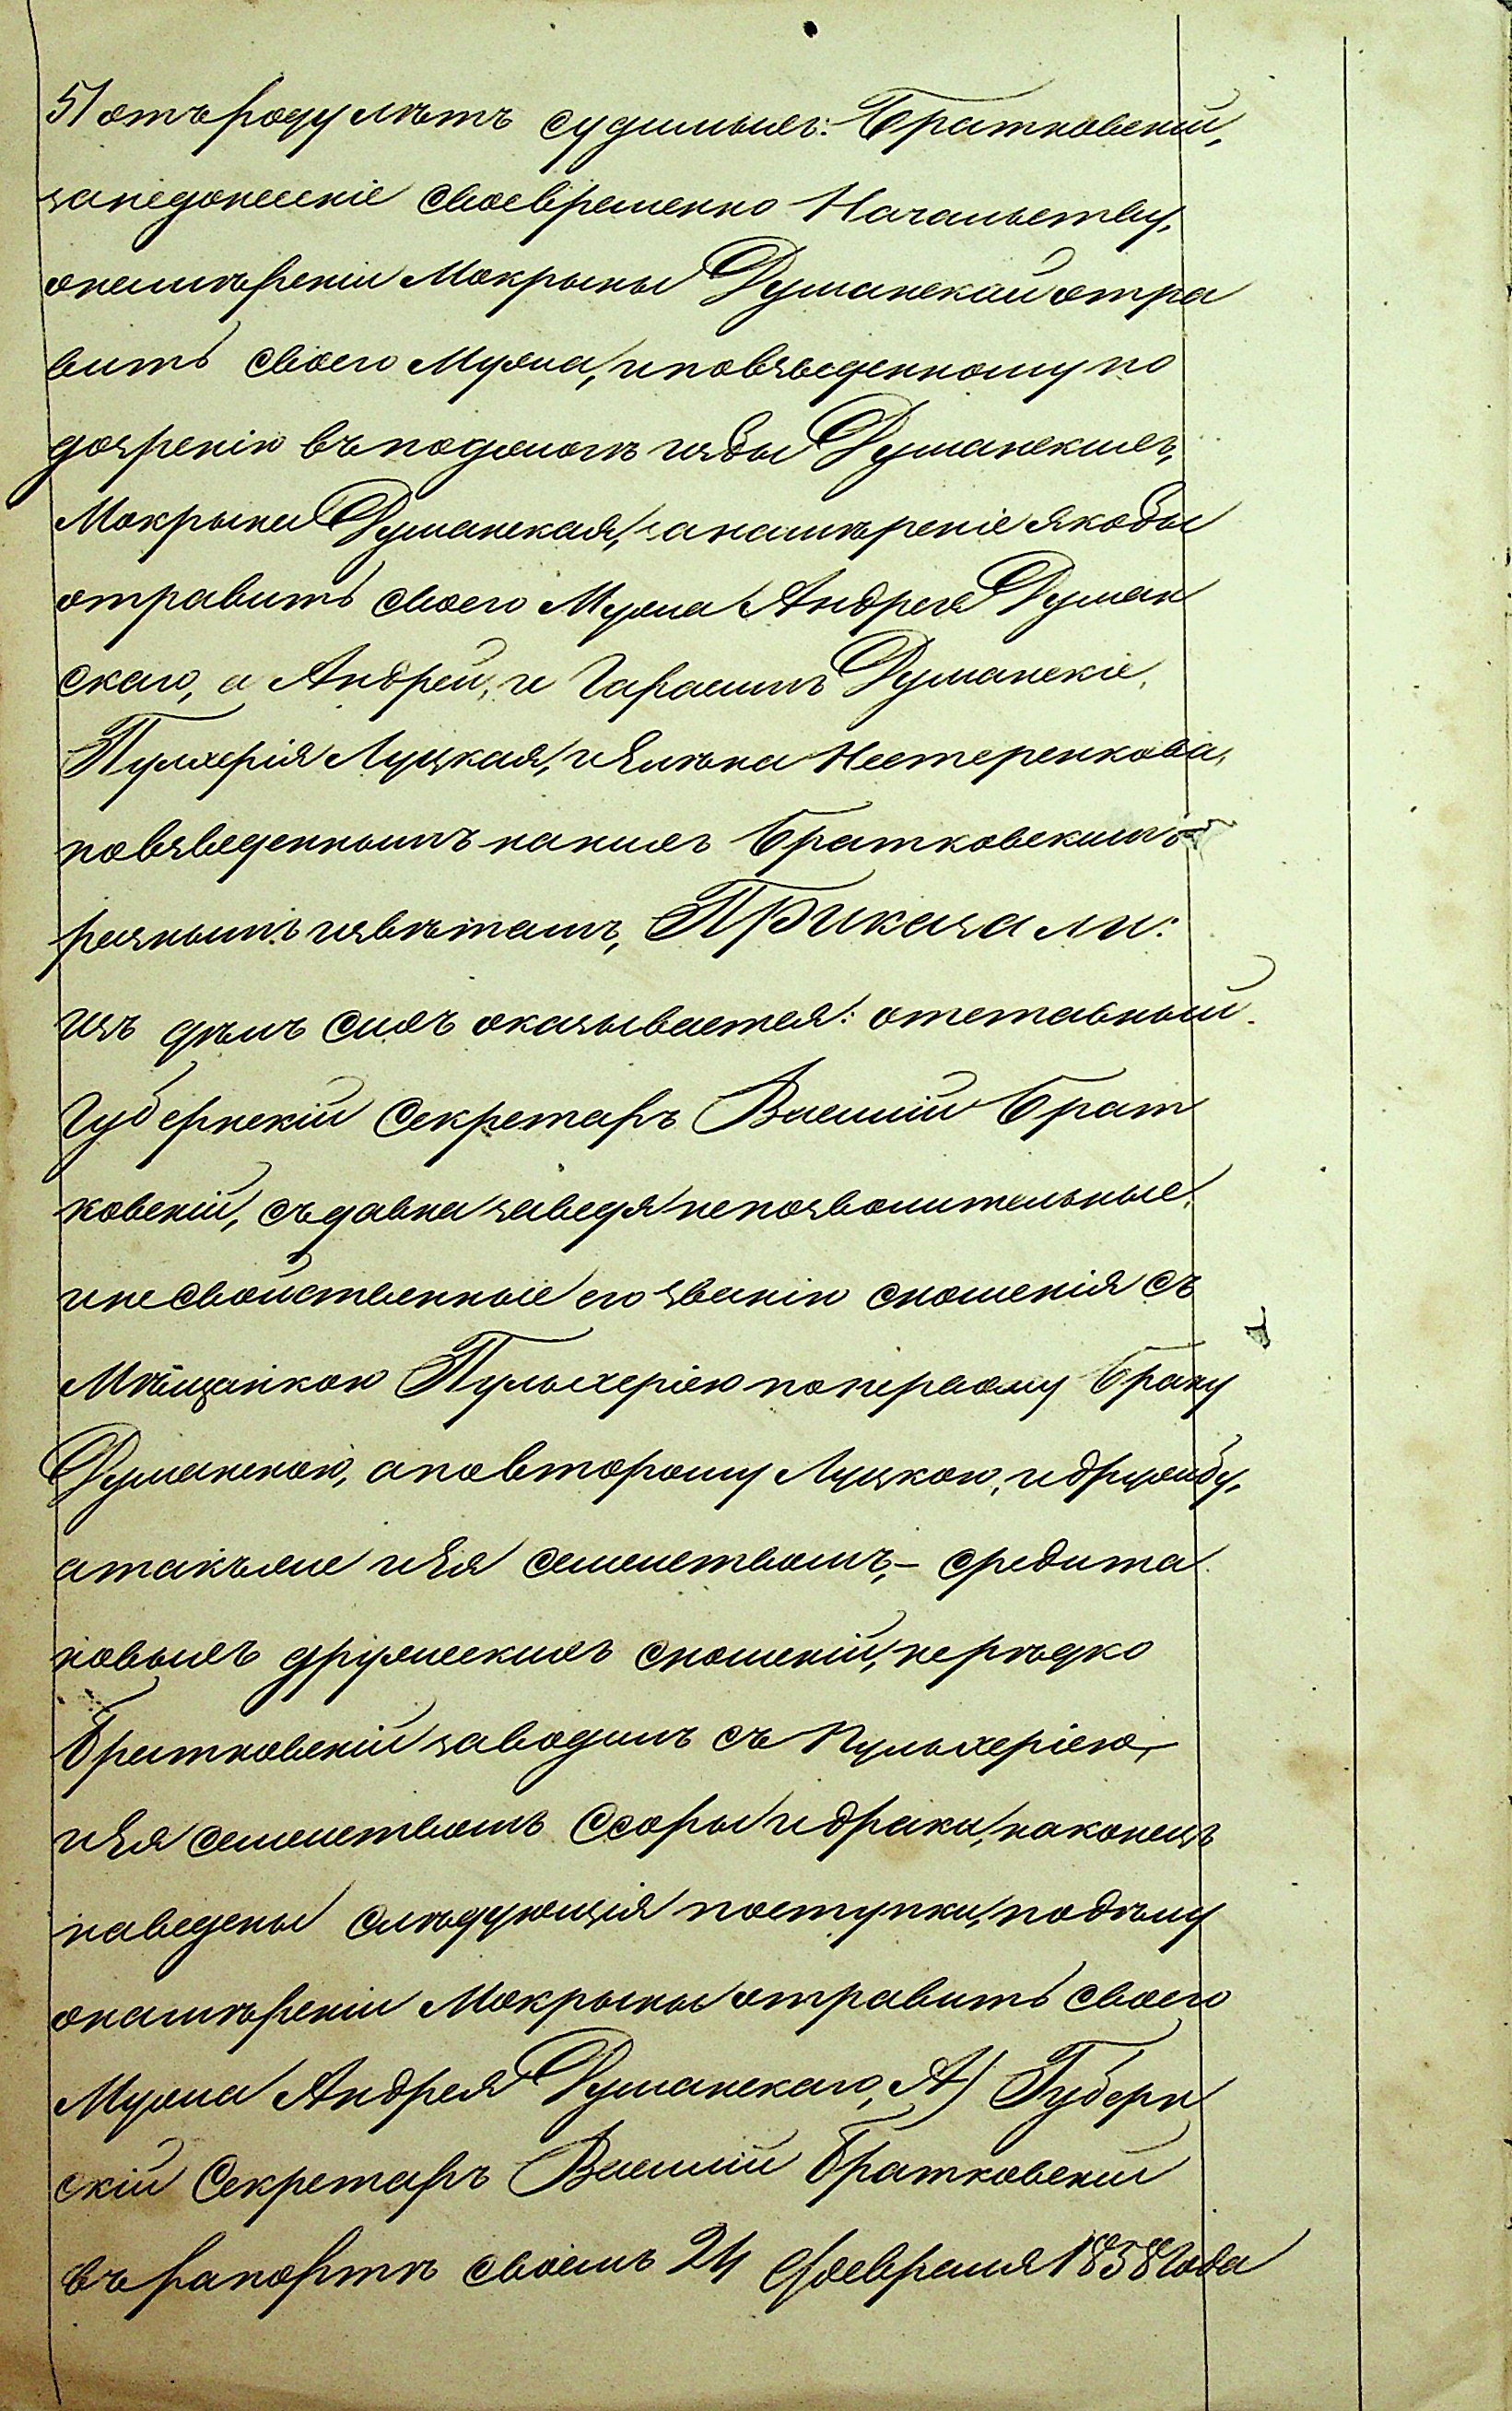 51 отъ роду лѣтъ судимыхъ: Братковскій,
за недонесеніе своевременно Начальству,
о намѣреніи Мокрыны Думанской отра
вить своего Мужа, и по взведенному по
дозренію въ поджогѣ избы Думанскихъ,
Мокрына Думанская, за намѣреніе якобы
отравить своего Мужа Андрея Думан
скаго, а Андрей, и Гарасимъ Думанскіе,
Пулхерія Луцкая, и Елѣна Нестеренкова,
по взведеннымъ на нихъ Братковскимъ
разнымъ извѣтамъ, Приказали:
изъ дѣлъ сихъ оказывается: отставный
Губернскій Секретарь Василій Брат
ковскій, съ давна заведя непозволительные
и не свойственные его званію сношенія съ
Мѣщанкою Пульхеріею по первому браку
Думанскою, а по второму Луцкою, и дружбу,
а такъже и Ея семействомъ,- среди та
ковыхъ дружескихъ сношеній, нерѣдко
Братковскій заводилъ съ Пульхеріею,
и Ея семействомъ Ссоры и драки, наконецъ
наведены слѣдующія поступки, по дѣлу
о намѣреніи Мокрыны отравить своего
Мужа Андрея Думанскаго, А) Губерн
скій Секретарь Василій Братковскій
въ рапортѣ своемъ 24 февраля 1858 года